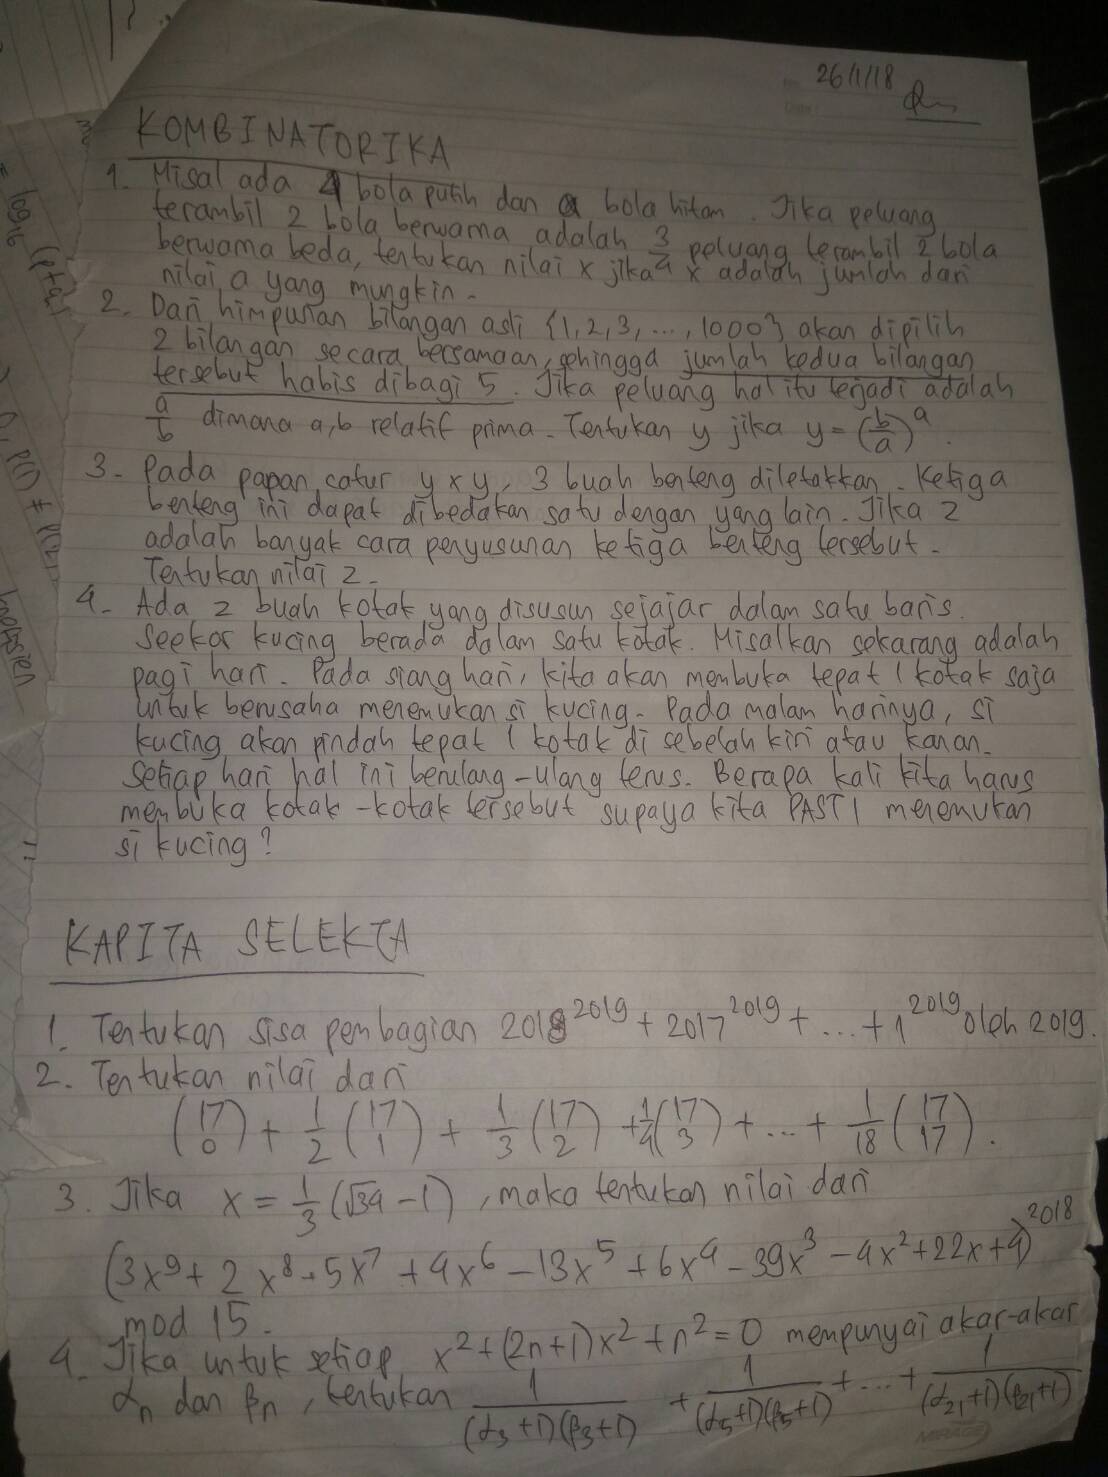 26/1/18
KOMBINATORIKA
1. Misal ada 4 bola putih dan a bola hitam. Jika peluang
terambil 2 bola berwarna adalah 3/4 peluang terambil 2 bola
berwarna beda, tentukan nilai x jika x adalah jumlah dari
nilai a yang mungkin.
2. Dari himpunan bilangan asli {1, 2, 3, ..., 1000} akan dipilih
2 bilangan secara bersamaan, sehingga jumlah kedua bilangan
tersebut habis dibagi 5. Jika peluang hal itu terjadi adalah
a/b dimana a,b relatif prima. Tentukan y jika y = (b/a)^a.
3. Pada papan catur y x y, 3 buah benteng diletakkan. Ketiga
benteng ini dapat dibedakan satu dengan yang lain. Jika z
adalah banyak cara penyusunan ketiga benteng tersebut.
Tentukan nilai z.
4. Ada z buah kotak yang disusun sejajar dalam satu baris.
Seekor kucing berada dalam satu kotak. Misalkan sekarang adalah
pagi hari. Pada siang hari, kita akan membuka tepat 1 kotak saja
untuk berusaha menemukan si kucing. Pada malam harinya, si
kucing akan pindah tepat 1 kotak di sebelah kiri atau kanan.
Setiap hari hal ini berulang-ulang terus. Berapa kali kita harus
membuka kotak-kotak tersebut supaya kita PASTI menemukan
si kucing?
KAPITA SELEKTA
1. Tentukan sisa pembagian 2018^2019 + 2017^2019 + ... + 1^2019 oleh 2019.
2. Tentukan nilai dari
(17 0) + 1/2 (17 1) + 1/3 (17 2) + 1/4 (17 3) + ... + 1/18 (17 17).
3. Jika x = 1/3 (√34 - 1), maka tentukan nilai dari
(3x^9 + 2x^8 + 5x^7 + 4x^6 - 13x^5 + 6x^4 - 39x^3 - 4x^2 + 22x + 4)^2018
mod 15.
4. Jika untuk setiap x² + (2n+1)x² + n² = 0 mempunyai akar-akar
αn dan βn, tentukan 1/(α3+1)(β3+1) + 1/(α5+1)(β5+1) + ... + 1/(α21+1)(β21+1)
MIRAGE